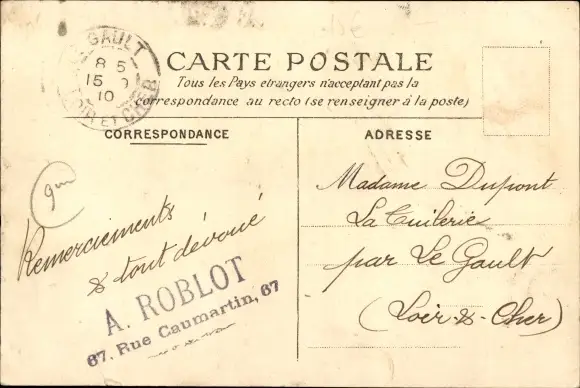 CARTE POSTALE
Tous les Pays etrangers n'acceptant pas la
correspondance au recto (se renseigner à la poste)
CORRESPONDANCE
ADRESSE
GAULT
8 5
15
10
LOIR ET CHER
Remerciements
& tout dévoué
A. ROBLOT
67, Rue Caumartin, 67
Madame Dupont
La Tuilerie
par Le Gault
(Loir-&-Cher)